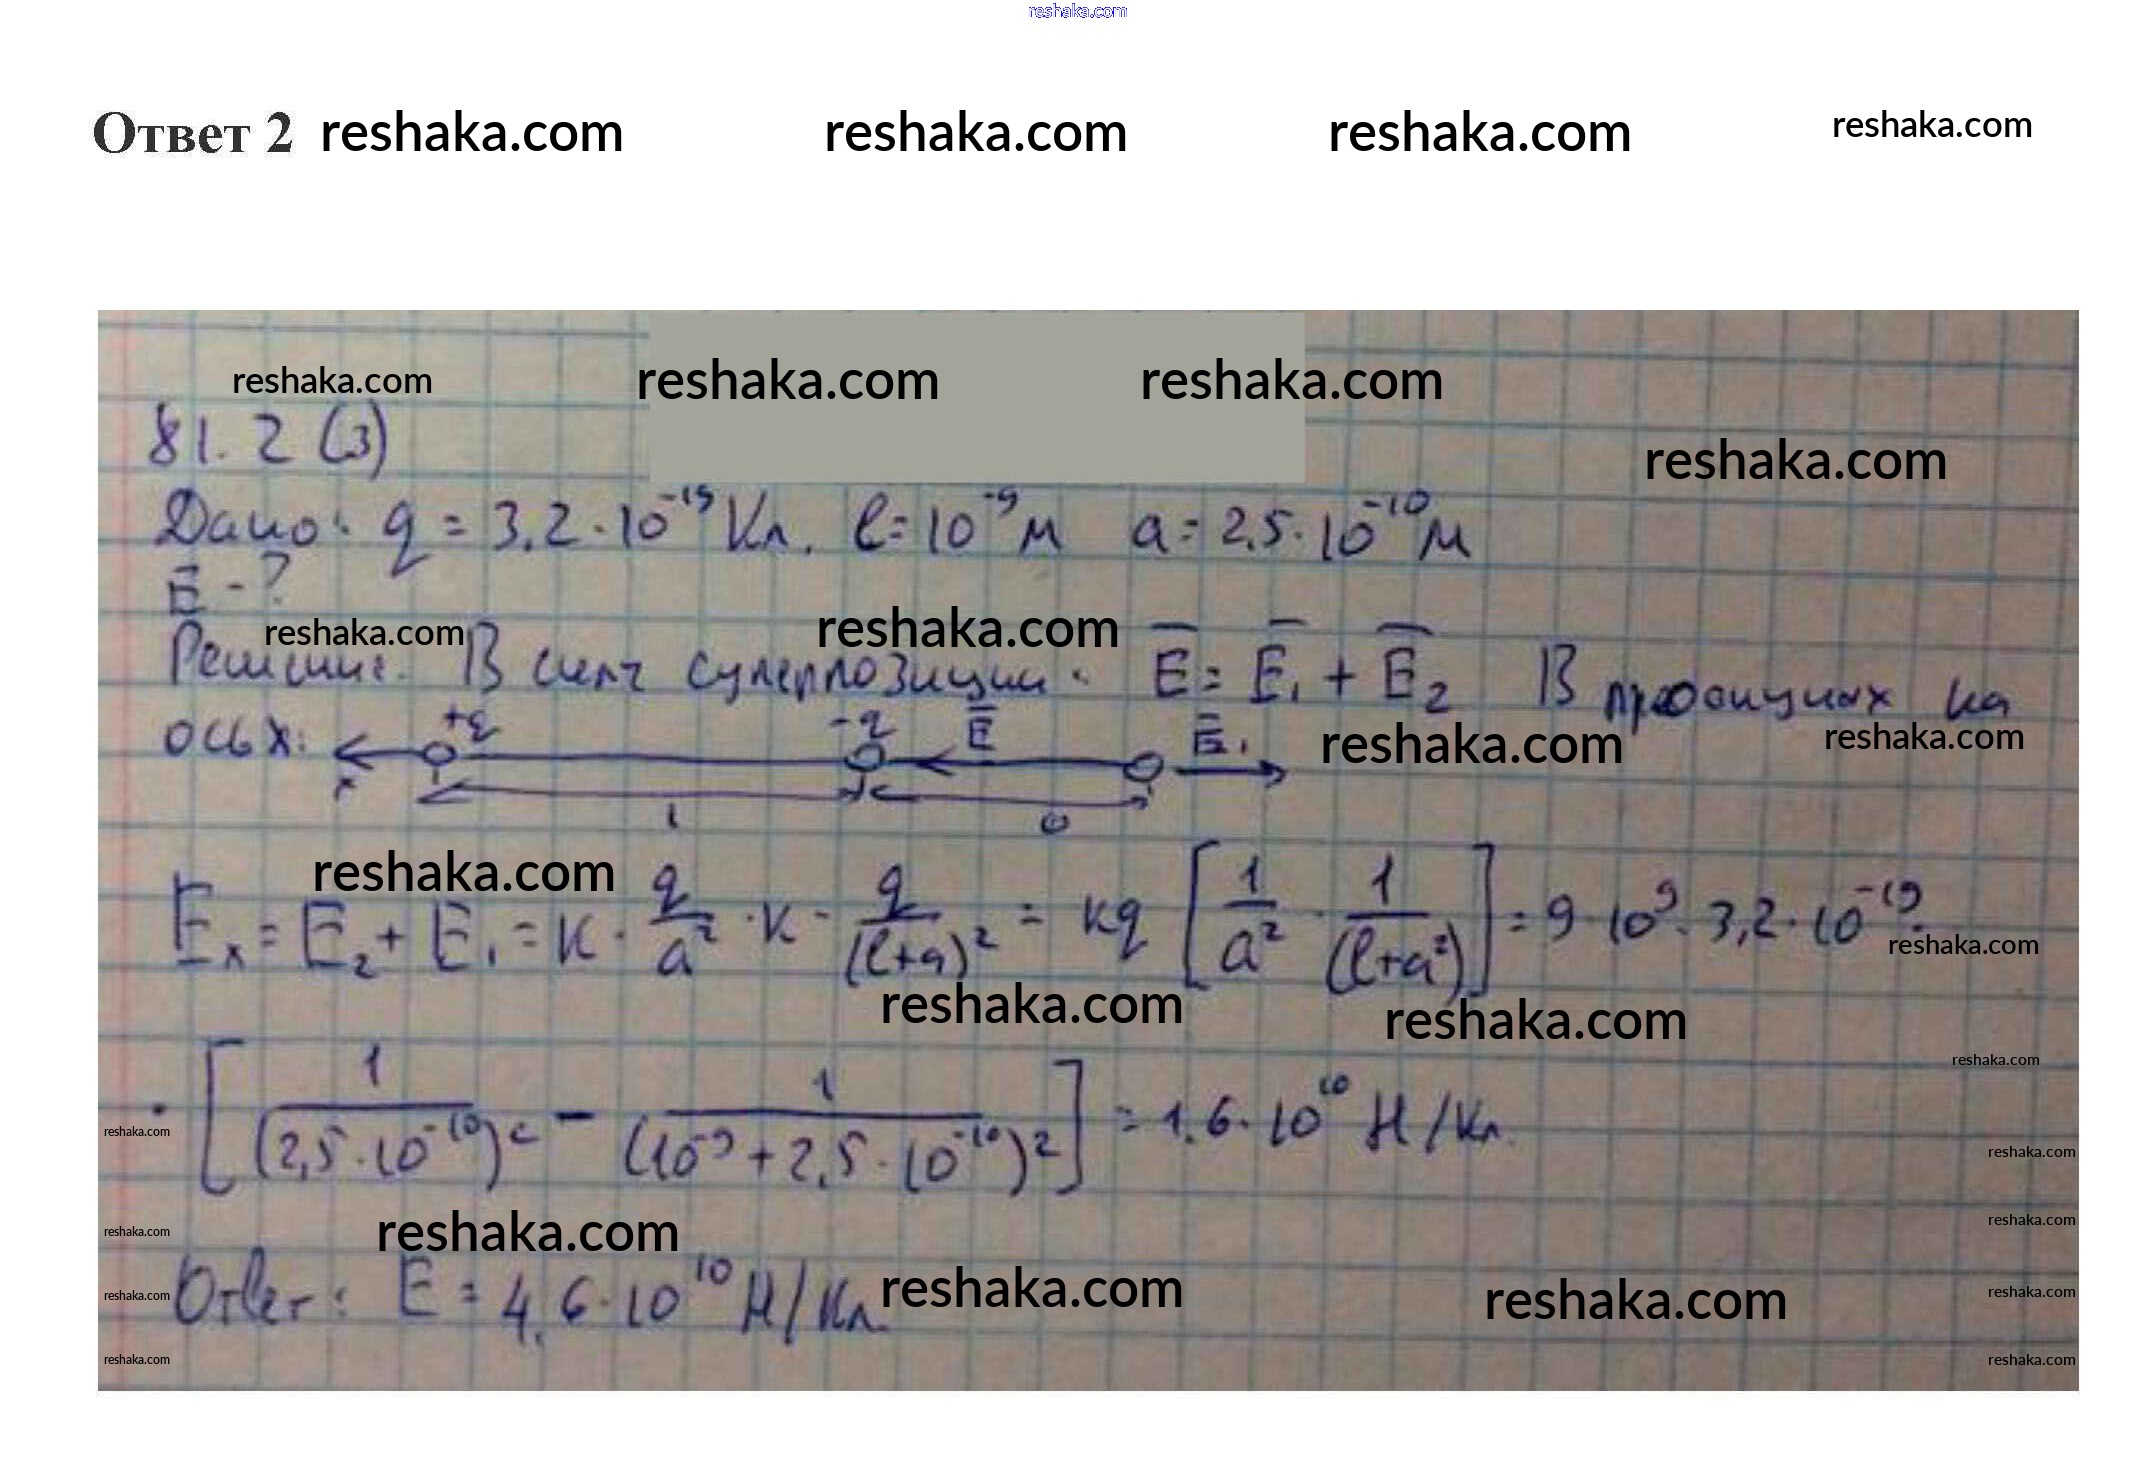 reshaka.com
Ответ 2 reshaka.com reshaka.com reshaka.com reshaka.com
reshaka.com reshaka.com reshaka.com
81.2 (3)
reshaka.com
Дано: q = 3,2·10⁻¹⁹ Кл. l = 10⁻⁹ м a = 2,5·10⁻¹⁰ м
E̅ - ?
reshaka.com reshaka.com
Решение: В силу суперпозиции: E̅ = E̅₁ + E̅₂ В проекциях на
ось x: +q -q E̅ E̅₁
reshaka.com reshaka.com
x l a
reshaka.com
Eₓ = E₂ + E₁ = k · q/a² · k - q/(l+a)² = kq [1/a² - 1/(l+a²)] = 9·10⁹·3,2·10⁻¹⁹·
reshaka.com
reshaka.com reshaka.com
reshaka.com
· [1/(2,5·10⁻¹⁰)² − 1/(10⁻⁹+2,5·10⁻¹⁰)²] = 1,6·10¹⁰ Н/Кл
reshaka.com reshaka.com
reshaka.com reshaka.com reshaka.com
Ответ: E = 4,6·10¹⁰ Н/Кл.
reshaka.com reshaka.com reshaka.com reshaka.com
reshaka.com reshaka.com